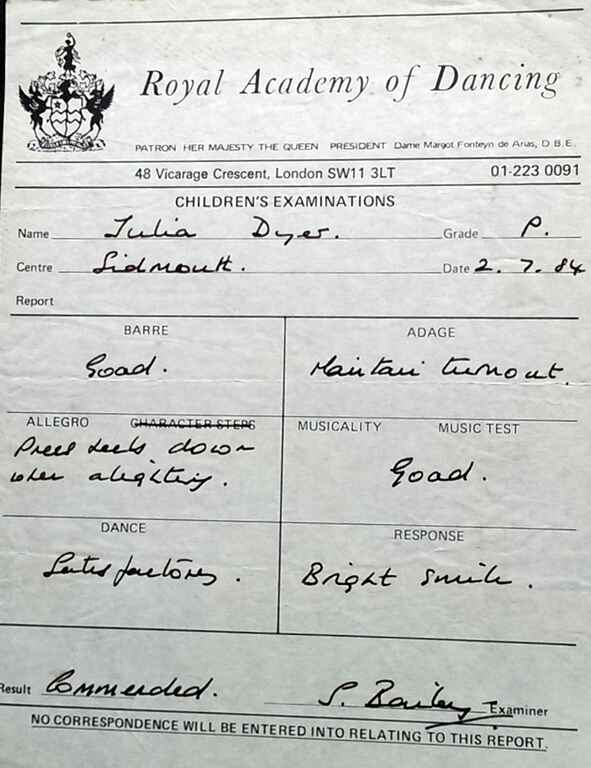 Royal Academy of Dancing
PATRON HER MAJESTY THE QUEEN PRESIDENT Dame Margot Fonteyn de Arias, D.B.E.
48 Vicarage Crescent, London SW11 3LT 01-223 0091
CHILDREN'S EXAMINATIONS
Name Julia Dyer. Grade P.
Centre Sidmouth. Date 2.7.84
Report
BARRE ADAGE
Good. Maintain turnout.
ALLEGRO CHARACTER STEPS MUSICALITY MUSIC TEST
Press heels down
when alighting. Good.
DANCE RESPONSE
Satisfactory. Bright smile.
Result Commended. S. Bailey Examiner
NO CORRESPONDENCE WILL BE ENTERED INTO RELATING TO THIS REPORT.